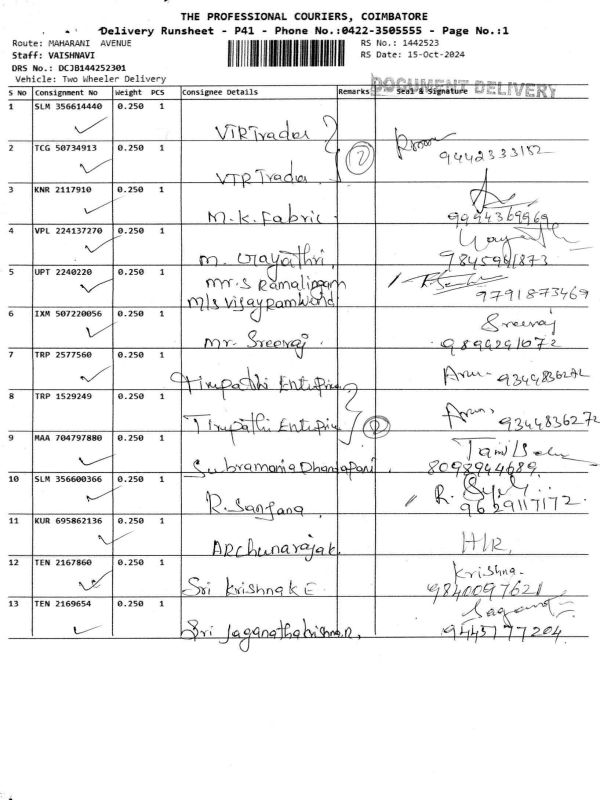 THE PROFESSIONAL COURIERS, COIMBATORE
Delivery Runsheet - P41 - Phone No.:0422-3505555 - Page No.:1
Route: MAHARANI AVENUE
RS No.: 1442523
Staff: VAISHNAVI
RS Date: 15-Oct-2024
DRS No.: DCJB144252301
Vehicle: Two Wheeler Delivery
DOCUMENT DELIVERY
S No Consignment No Weight PCS Consignee Details Remarks Seal & Signature
1 SLM 356614440 0.250 1
VTR Trader
2 TCG 50734913 0.250 1
VTR Trader
2
9442333152
3 KNR 2117910 0.250 1
M.K. Fabric
9994369969
4 VPL 224137270 0.250 1
5 UPT 2240220 0.250 1
Mr.S Ramalingam
9791873469
6 IXM 507220056 0.250 1
Mr. Sreeraj
Sreeraj
7 TRP 2577560 0.250 1
Arun 9344836272
8 TRP 1529249 0.250 1
2
Arun, 9344836272
9 MAA 704797880 0.250 1
8098944689
10 SLM 356600366 0.250 1
R.
9629117172
11 KUR 695862136 0.250 1
12 TEN 2167860 0.250 1
Sri Krishna K E
Krishna
9840097621
13 TEN 2169654 0.250 1
9445177204